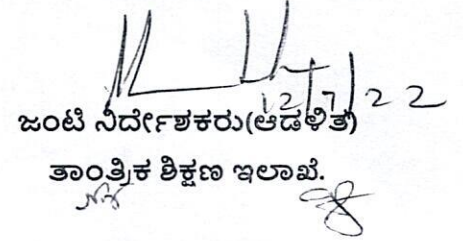 12/7/22
ಜಂಟಿ ನಿರ್ದೇಶಕರು(ಆಡಳಿತ)
ತಾಂತ್ರಿಕ ಶಿಕ್ಷಣ ಇಲಾಖೆ.